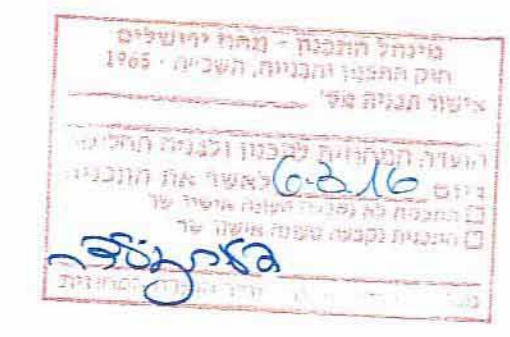 מינהל התכנון - מחוז ירושלים
חוק התכנון והבניה, התשכ"ה - 1965
אישור תכנית מס'
הועדה המחוזית לתכנון ולבניה החליטה
ביום 6.3.16 לאשר את התכנית
התכנית לא נקבעה טעונה אישור שר
התכנית נקבעה טעונה אישור שר
יו"ר הועדה המחוזית